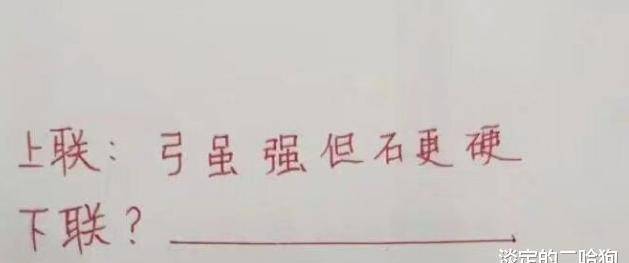 上联：弓虽强但石更硬
下联？
淡定的二哈狗